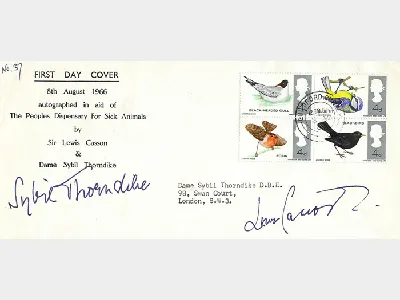 No. 37
FIRST DAY COVER
8th August 1966
autographed in aid of
The Peoples Dispensary for Sick Animals
by
Sir Lewis Casson
&
Dame Sybil Thorndike
Sybil Thorndike
BLACK-HEADED GULL
4d
4d
ROBIN
4d
BLACKBIRD
4d
Dame Sybil Thorndike D.B.E.
98, Swan Court,
London, S.W.3.
Lewis Casson